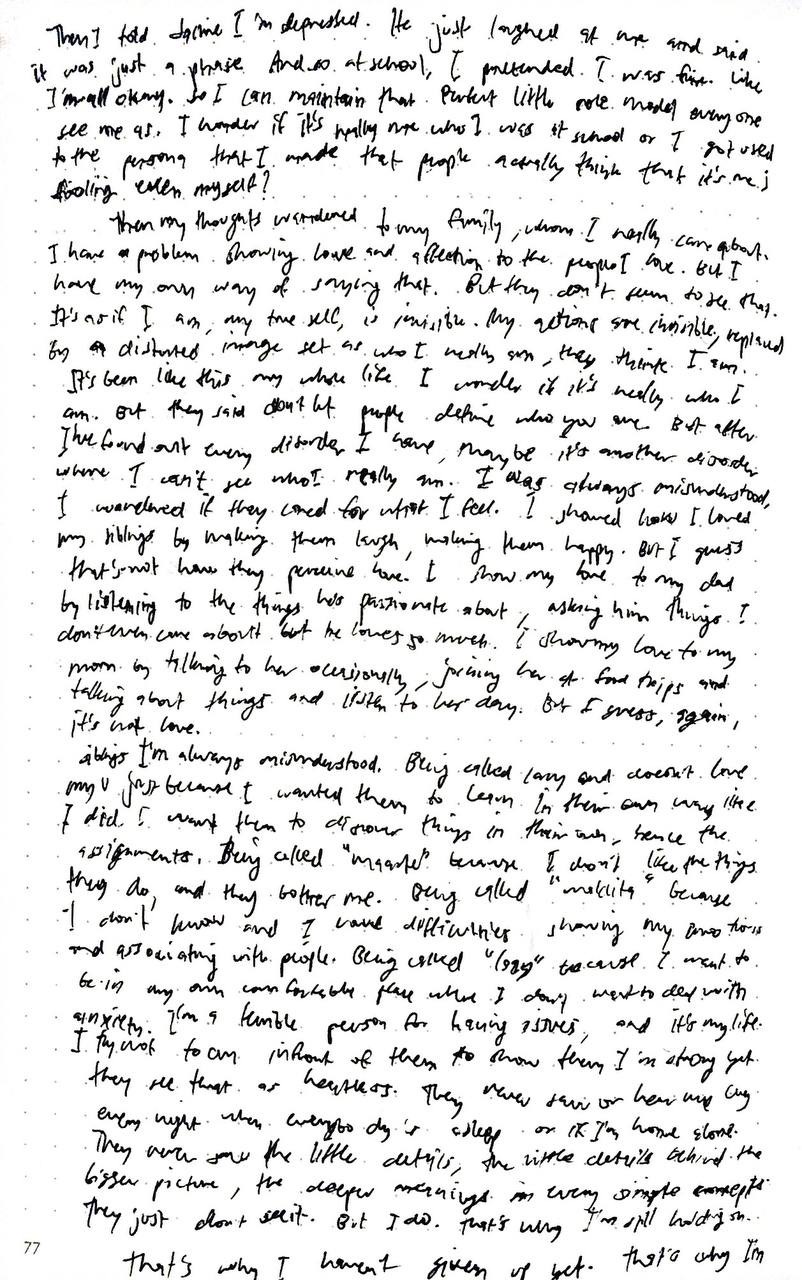 Then I told Jaime I'm depressed. He just laughed at me and said
it was just a phrase And so at school, I pretended I was fine. Like
I'm all okay. So I can maintain that Perfect little role model everyone
see me as. I wonder if it's really me who I was at school or I got used
to the persona that I made that people actually think that it's me;
fooling even myself?
Then my thoughts wandered to my family, whom I really care about.
I have a problem showing love and affection to the people I love. But I
have my own way of saying that. But they don't seem to see that.
It's as if I am, my true self, is invisible. My actions are invisible, replaced
by a distorted image set as who I really am, they think I am.
It's been like this my whole life I wonder if it's really who I
am. But they said don't let people define who you are. But after
I've found out every disorder I have, maybe it's another disorder
where I can't see who I really am. I was always misunderstood,
I wondered if they cared for what I feel. I showed how I loved
my siblings by making them laugh, making them happy. But I guess
that's not how they perceive love. I show my love to my dad
by listening to the things he's passionate about, asking him things I
don't even care about but he loves so much. I show my love to my
mom by talking to her occasionally, joining her at food trips and
talking about things and listen to her day. But I guess, again,
it's not love.
siblings I'm always misunderstood. Being called lazy and doesn't love
my just because I wanted them to learn in their own way like
I did. I want them to discover things in their own, hence the
assignments. Being called "maarte" because I don't like the things
they do, and they bother me. Being called "maldita" because
I don't know and I have difficulties showing my emotions
and associating with people. Being called "lazy" because I want to
be in my own comfortable place where I don't want to deal with
anxiety. I'm a terrible person for having issues, and it's my life.
I try not to cry infront of them to show them I'm strong yet
they see that as heartless. They never saw or hear me cry
every night when everybody is asleep or if I'm home alone.
They never saw the little details, the little details behind the
bigger picture, the deeper meanings in every simple concepts
They just don't see it. But I do. That's why I'm still holding on.
77
that's why I haven't given up yet. that's why I'm